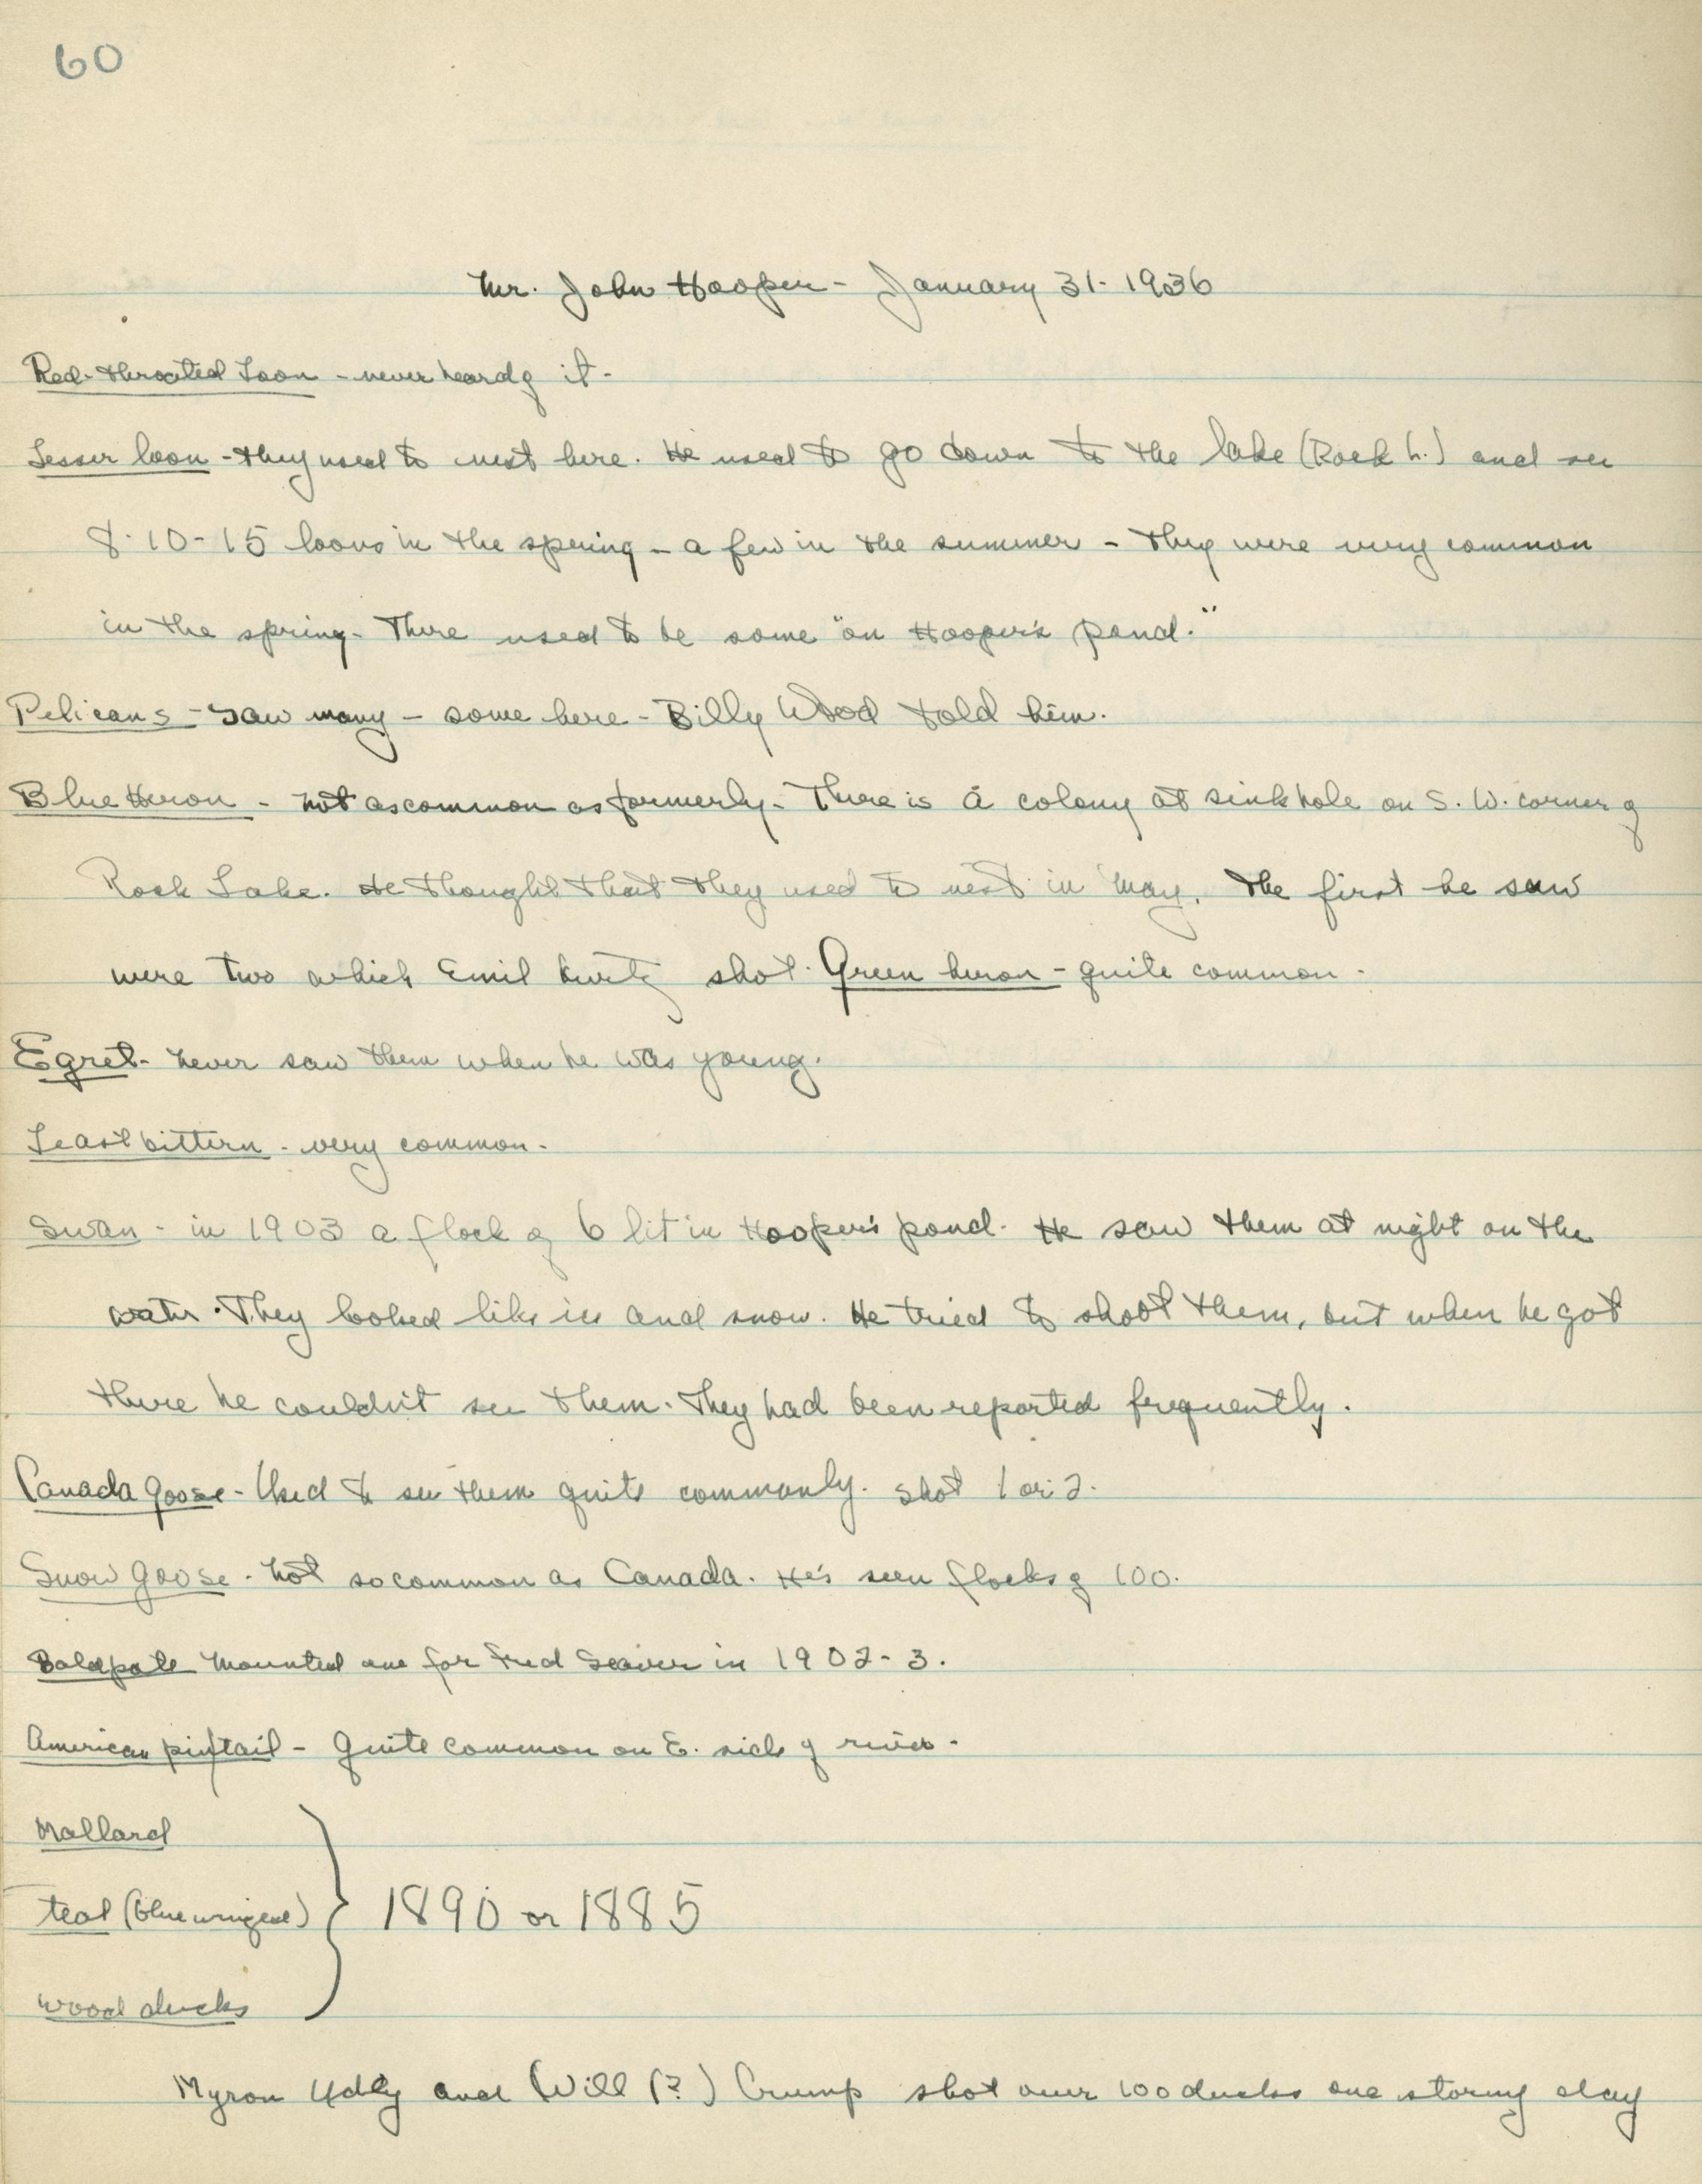 60
Mr. John Hooper - January 31 - 1936
Red-throated Loon - never heard of it -
Lesser loon - they used to nest here. He used to go down to the lake (Rock L.) and see
8-10-15 loons in the spring - a few in the summer - They were very common
in the spring. There used to be some "on Hooper's pond."
Pelicans - saw many - some here - Billy Wood told him.
Blue Heron - not as common as formerly - There is a colony at sink hole on S. W. corner of
Rock Lake. He thought that they used to nest in May. The first he saw
were two which Emil shot. Green heron - quite common -
Egret - never saw them when he was young.
Least bittern - very common -
Swan - in 1903 a flock of 6 lit in Hooper's pond. He saw them at night on the
water. They looked like ice and snow. He tried to shoot them, but when he got
there he couldn't see them. They had been reported frequently.
Canada goose - Used to see them quite commonly. Shot 1 or 2.
Snow goose - not so common as Canada. He's seen flocks of 100.
Baldpate mounted one for Fred Seaver in 1902-3.
American pintail - Quite common on E. side of river -
Mallard
teal (blue winged) } 1890 or 1885
wood ducks
Myron and Will (?) Crump shot over 100 ducks one stormy day